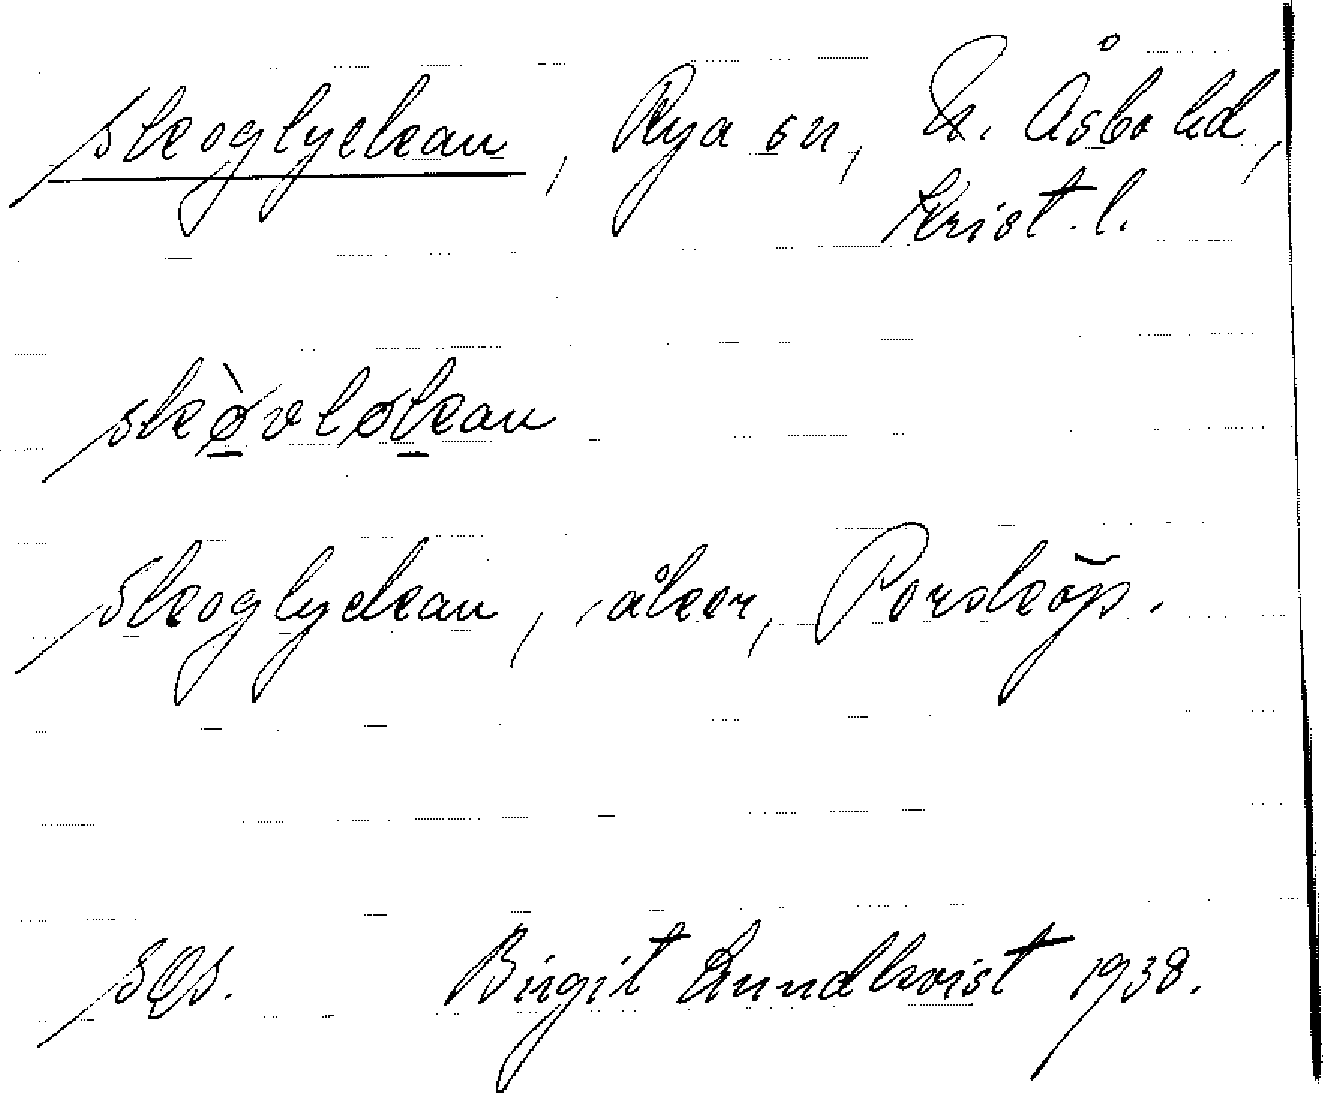 Skoglyckan, Rya sn, N. Åsbo hd,
Krist. l.
skòvløkan
Skoglyckan, åker, Porsköp.
sqs. Birgit Lundkvist 1938.